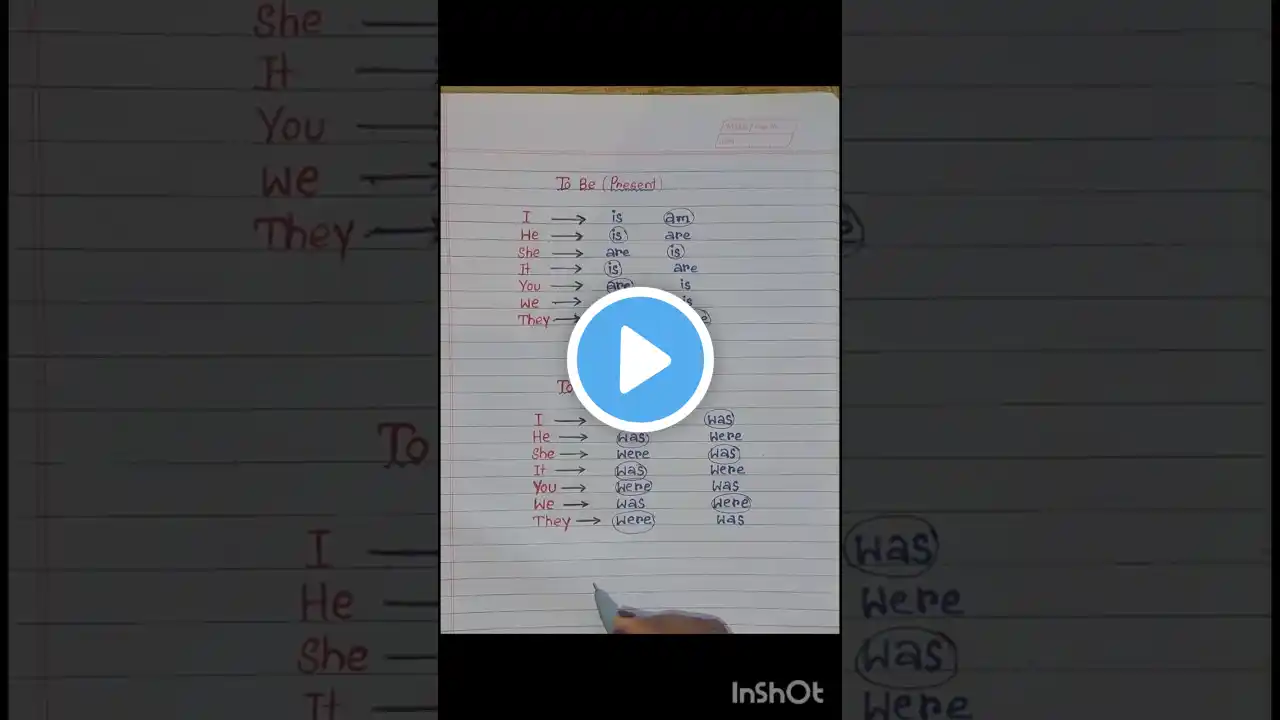 She →
It →
You →
We →
They →
To
I →
He →
She →
It →
To Be (Present)
I → is am
He → is are
She → are is
It → is are
You → are is
We → is
They →
To
I → was
He → was were
She → were was
It → was were
You → were was
We → was were
They → were was
was
were
was
were
InShOt